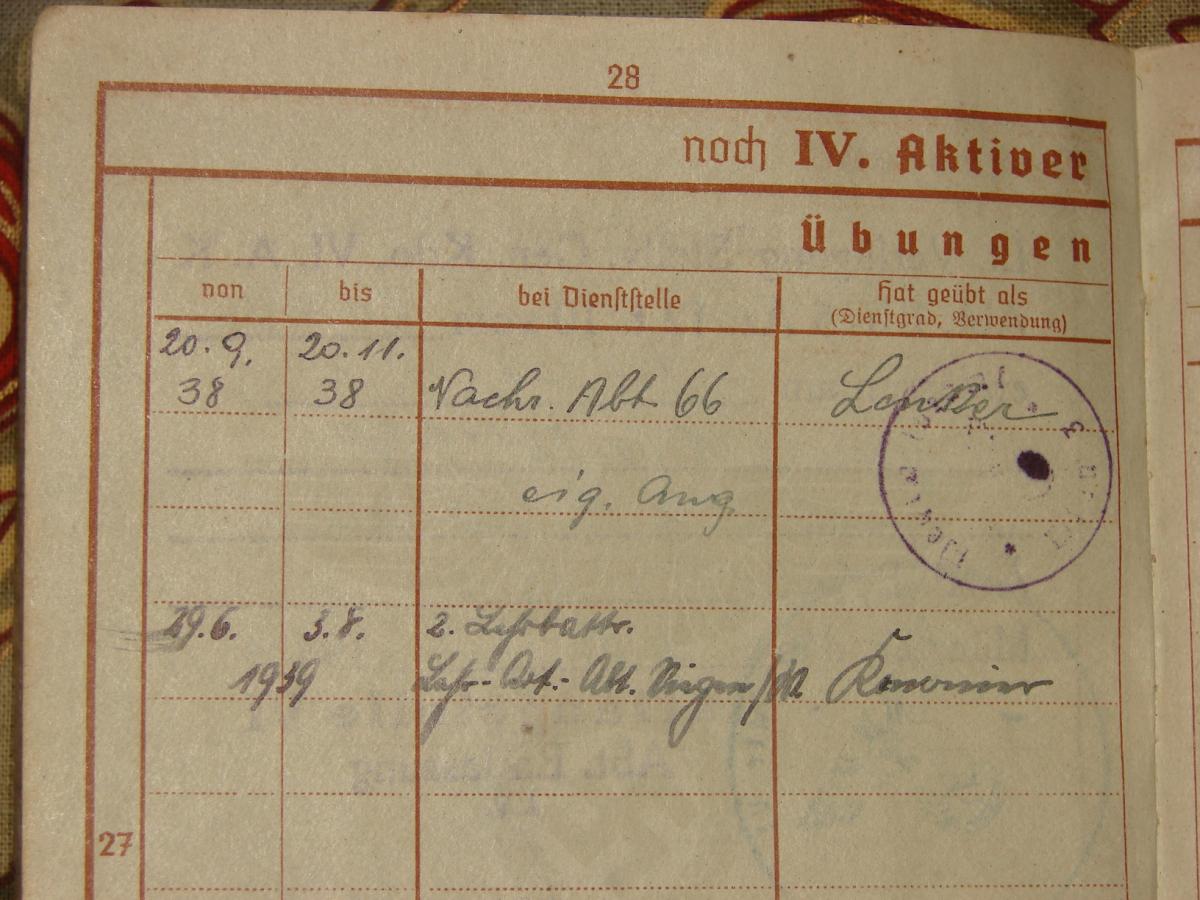 28
noch IV. Aktiver
Übungen
von
bis
bei Dienststelle
Hat geübt als
(Dienstgrad, Verwendung)
20.9. 20.11.
38 38 Nachr. Abt 66
eig. Ang.
29.6. 3.8. 2. Lehrbattr.
1939 Lehr-Art.-Abt. Kanonier
27